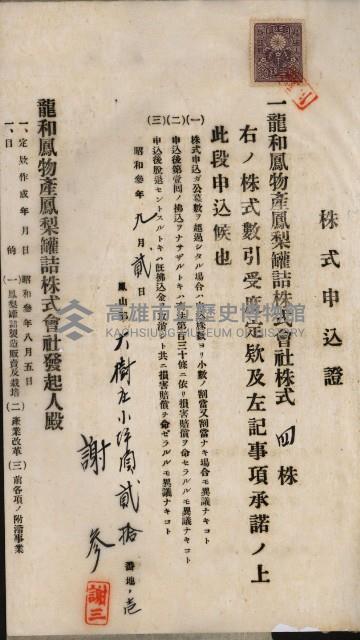 株式申込證
一龍和鳳物產鳳梨罐詰株式會社株式 四 株
右ノ株式數引受度定欵及左記事項承諾ノ上
此段申込候也
(一) 株式申込ガ公募數ヲ超過シタル場合ハ申込株數ヨリ小數ノ割當又割當ナキ場合モ異議ナキコト
(二) 申込後第壹回ノ拂込ヲナサザルトキハ
(三) 申込後脫退セントスルトキハ既拂込金ヲ
共ニ損害賠償ヲ命セラルルモ異議ナキコト
昭和參年九月貳日
鳳山郡大樹庄小坪頂貳拾番地ノ壱
謝參
謝三
龍和鳳物產鳳梨罐詰株式會社發起人殿
一、定欵作成年月日 昭和參年八月五日
一、目的 (一)鳳梨罐詰製造販賣及栽培 (二)產業改革 (三)前各項ノ附滯事業
高雄市立歷史博物館
KAOHSIUNG MUSEUM OF HISTORY